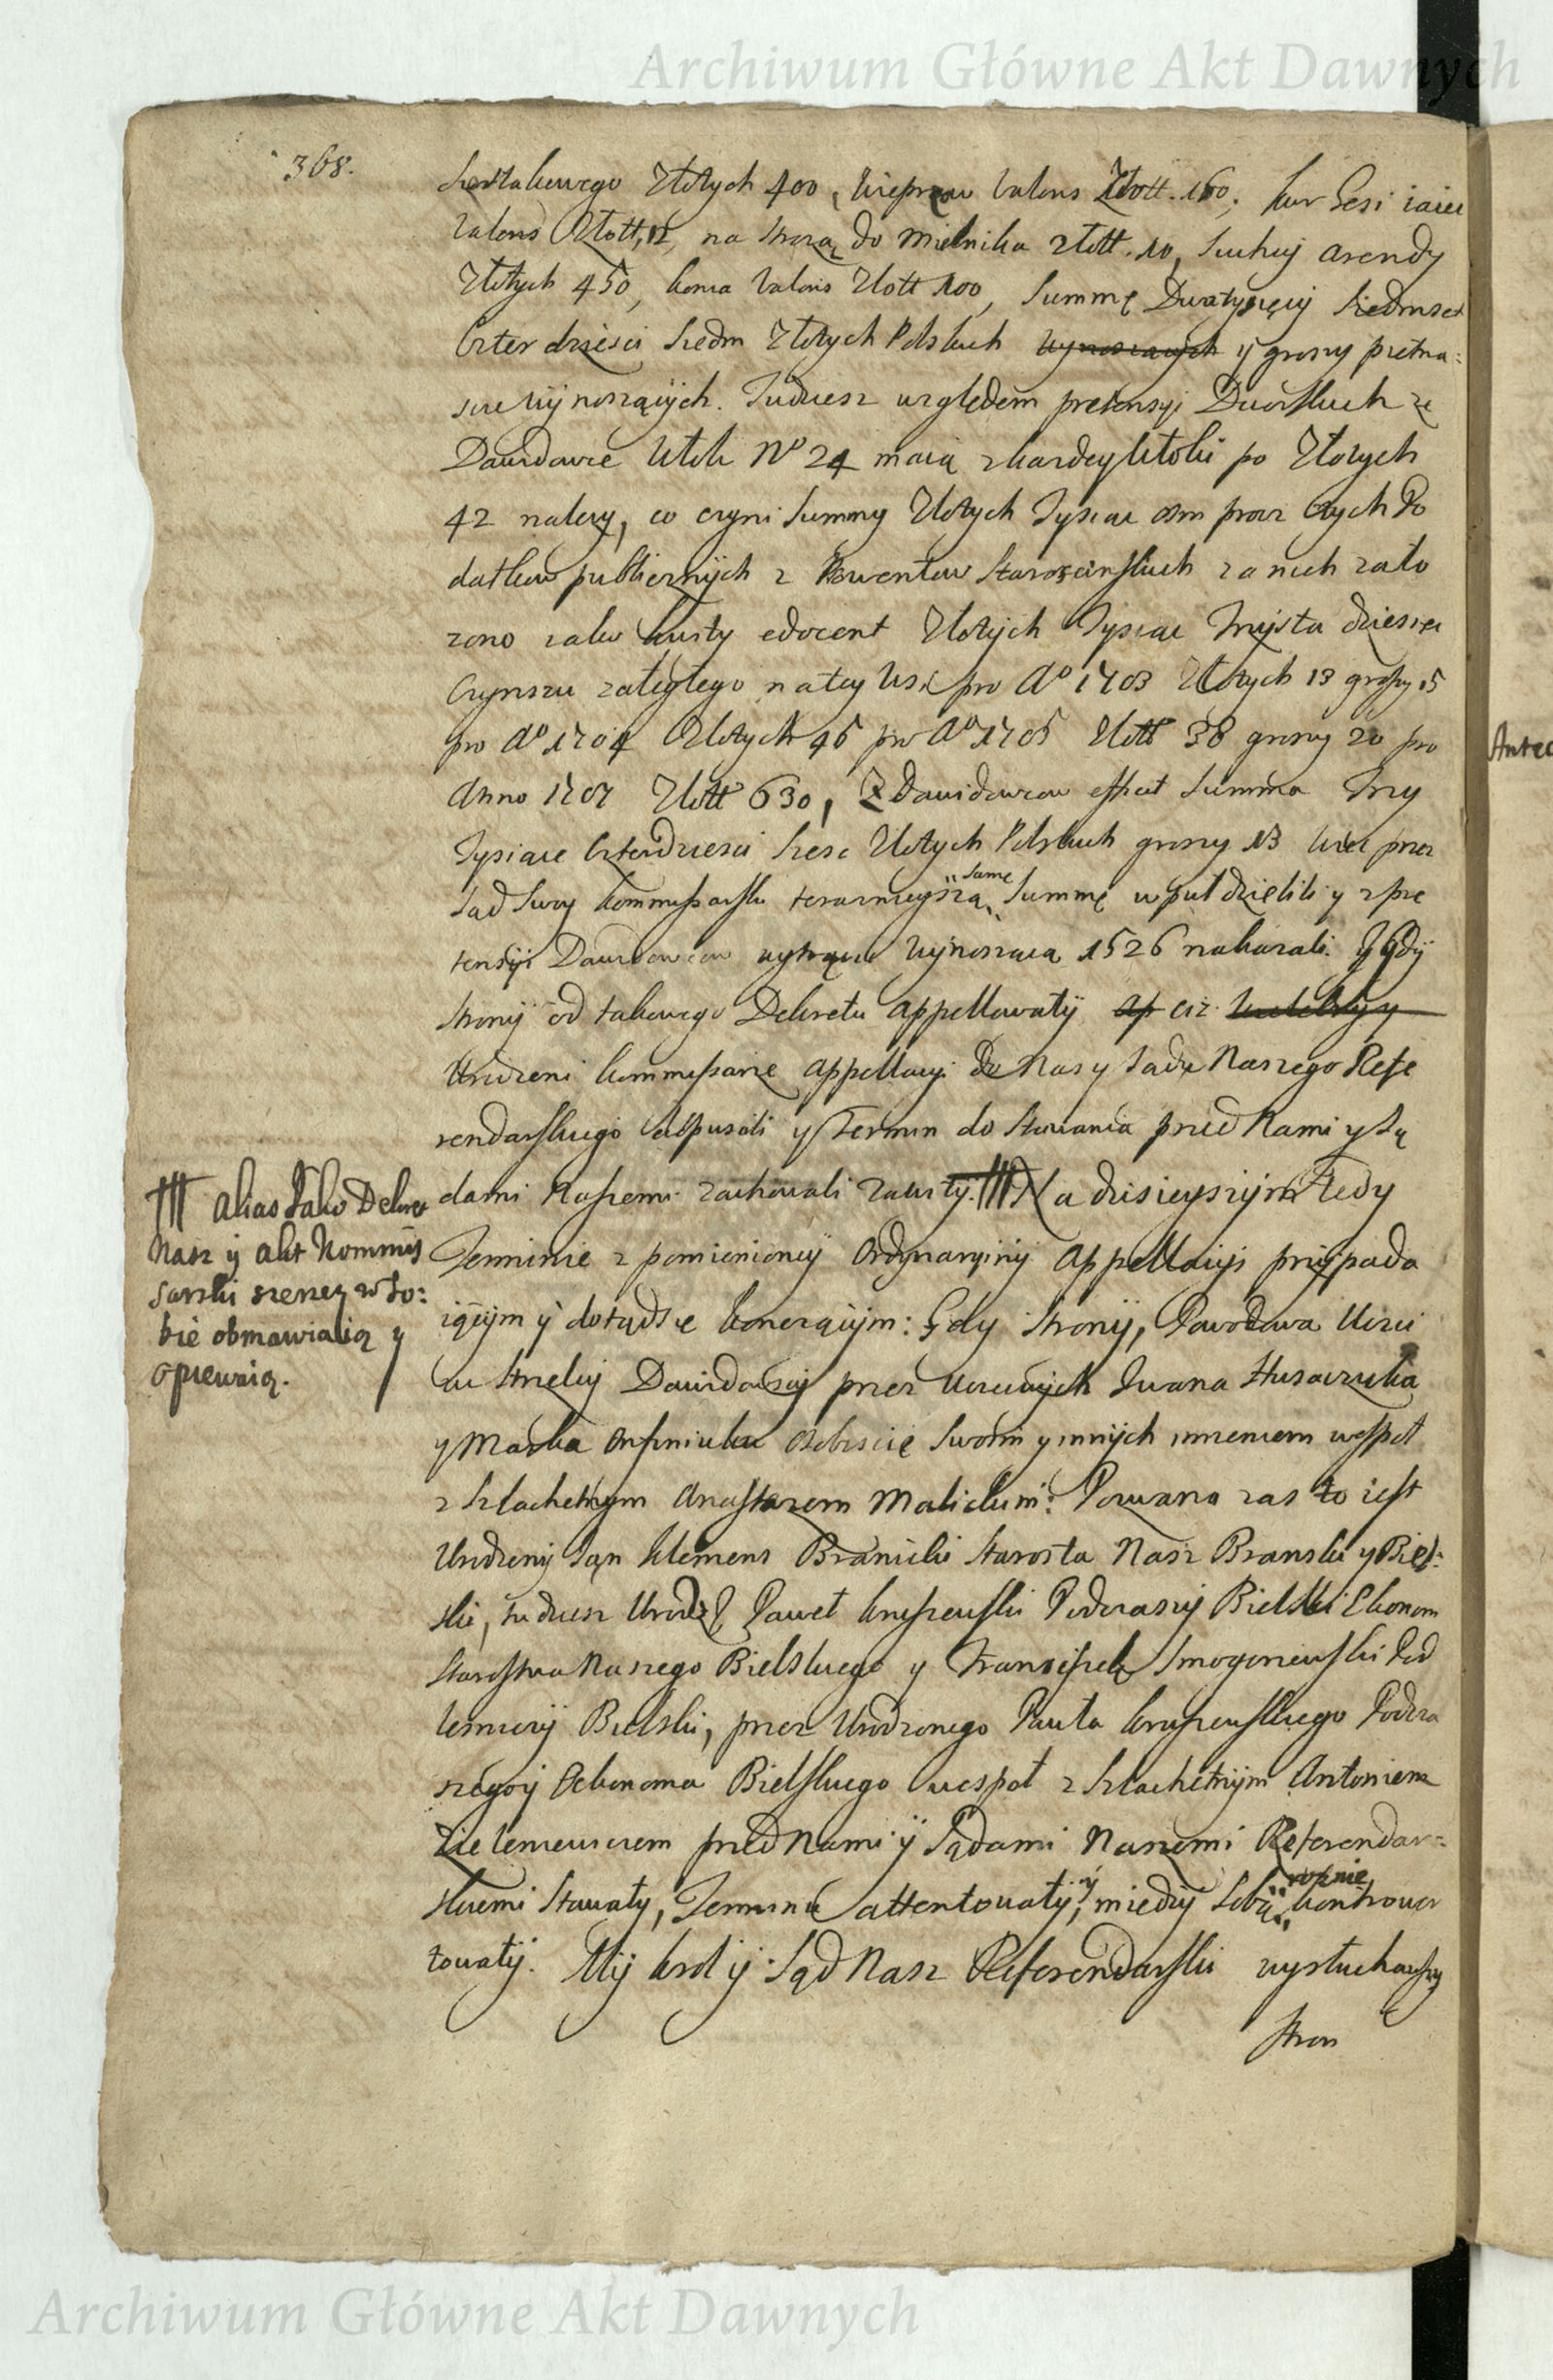 Archiwum Główne Akt Dawnych
368.
Szostakowego Złotych 400, Wieprzow valoris Złott. 160, kur Gesi iaiec
valoris Złott, 12, na stroza do Mielnika złott. 10, Suchey arendy
Złotych 450, konia valoris Złott 100, Summę Dwatysięcy Siedmset
Czterdziesci Siedm Złotych Polskich wynoszących y groszy pietna:
scie wÿnosząцÿch. Tudziesz względem pretensyi Dworskich ze
Dawidowce Włok No 24 maią zkazdey Włoki po Złotych
42 nalezy, co czyni Summy Złotych Tysiac osm przez tych Po
datkow publicznÿch z Prowentow Staroscinskich za nich zało
zono iako kwity edocent Złotÿch Tysiac Trzÿsta dziesiec
Czynszu zaległego natey Wsi pro Ao 1703 Złotych 13 groszy 15
pro Ao 1704 Złotych 46 pro Ao 1705 Złott 38 groszy 20 pro
Anno 1707 Złott 630, Z Dawidowcow efficit Summa Trzy
Tysiace Czterdziesci szesc Złotych Polskich groszy 13 wiec przez
Sąd Swoy kommissarski teraznieyszą same Summę wpuł dzielili y z pre
tensÿi Dawidowcow wytrącic wÿnosząca 1526 nakazali. Y gdÿ
Stronÿ od takowego Dekretu appellowałÿ ap ciz
Urodzeni kommissarze appellacyi do Nas y Sadu Naszego Refe
rendarskiego dopuscili y Termin do Stawania przed Nami y Są
dami Naszemi zachowali zawitÿ. Na dzisieyszÿm tedy
Terminie z pomienionej Ordynaryinÿ appellacyi przÿpada
iącÿm ÿ dotądsię koncząцÿm: Gdy Stronÿ, Powodowa Uczci
wi Strzelcy Dawidowscy przez Uczciwÿch Iwana Husaczuka
y Maska Onfiniuka osobiscie Swoim y innÿch imieniem wespoł
z Szlachetnym Anastazem Malickim: Pozwana zas to iest
Urodzenÿ Jan klemens Branicki Starosta Nasz Branski y Biel:
ski, tudziesz Urodz. Paweł kruszewski Podczaszÿ Bielski Ekonom
Starostwa Naszego Bielskiego y Franciszek Smogorzewski Pod
lesniczÿ Bielski, przez Urodzonego Pawła kruszewskiego Podcza
szego ÿ Oekonoma Bielskiego wespoł z Szlachetnÿm Antoniem
Zieleniewiczem przed Nami ÿ Sądami Naszemi Referendar=
skiemi Stawały, Terminu attentowałÿ, ÿ miedzÿ Sobą rożnie kontrower
towałÿ. Mÿ krol ÿ Sąd Nasz Referendarski wysłuchawszy
Stron
alias Jako Dekret
Nasz ÿ akt Kommis
sarski szerzey w so:
bie obmawiaią y
opiewaią.
Archiwum Główne Akt Dawnych